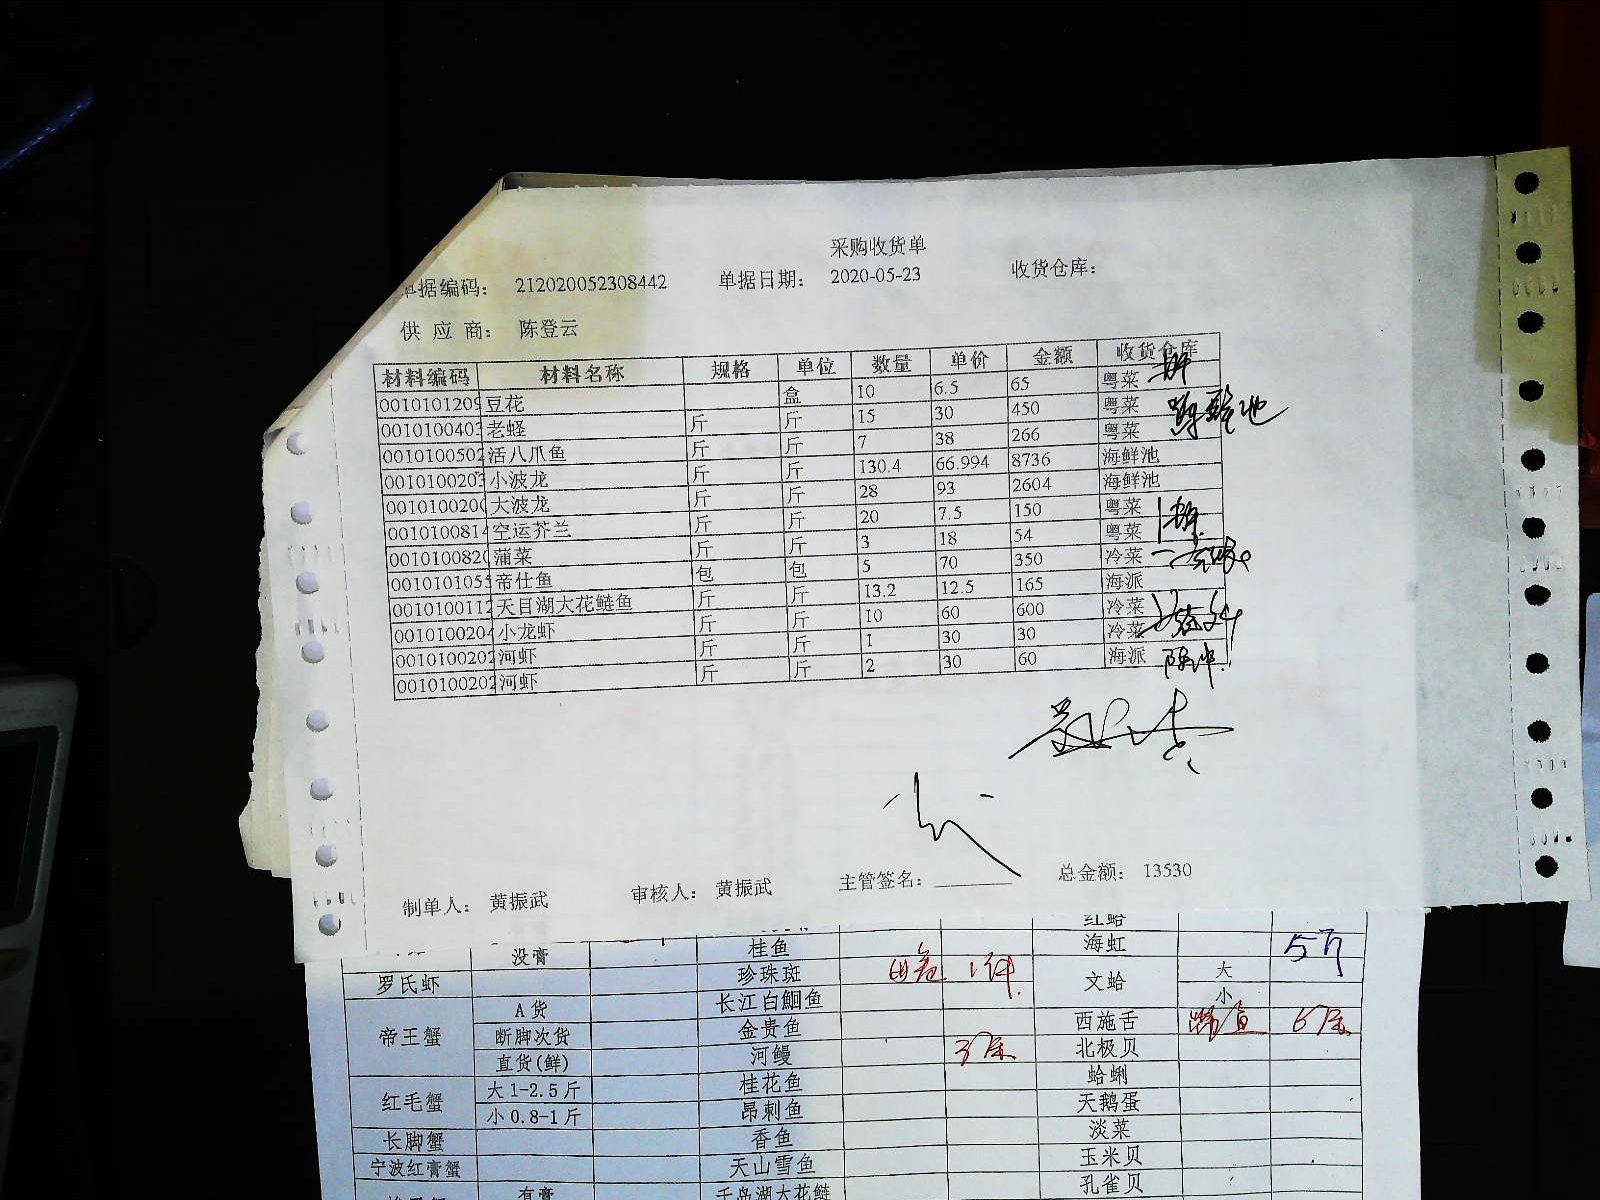 采购收货单
单据编码： 212020052308442 单据日期： 2020-05-23 收货仓库：
供 应 商： 陈登云
材料编码 材料名称 规格 单位 数量 单价 金额 收货仓库
0010101209 豆花 盒 10 6.5 65 粤菜
0010100403 老蛏 斤 斤 15 30 450 粤菜
0010100502 活八爪鱼 斤 斤 7 38 266 粤菜
0010100203 小波龙 斤 斤 130.4 66.994 8736 海鲜池
0010100200 大波龙 斤 斤 28 93 2604 海鲜池
0010100814 空运芥兰 斤 斤 20 7.5 150 粤菜
0010100820 蒲菜 斤 斤 3 18 54 粤菜
0010101055 帝仕鱼 包 包 5 70 350 冷菜
0010100112 天目湖大花鲢鱼 斤 斤 13.2 12.5 165 海派
0010100204 小龙虾 斤 斤 10 60 600 冷菜
0010100202 河虾 斤 斤 1 30 30 冷菜
0010100202 河虾 斤 斤 2 30 60 海派
制单人： 黄振武 审核人： 黄振武 主管签名： 总金额： 13530
红蛤
没膏 桂鱼 海虹 5斤
罗氏虾 珍珠斑 1件 文蛤 大
A货 长江白鮰鱼 小
帝王蟹 断脚次货 金贵鱼 西施舌
直货(鲜) 河鳗 北极贝
红毛蟹 大1-2.5斤 桂花鱼 蛤蜊
小0.8-1斤 昂刺鱼 天鹅蛋
长脚蟹 香鱼 淡菜
宁波红膏蟹 天山雪鱼 玉米贝
有膏 千岛湖大花鲢 孔雀贝